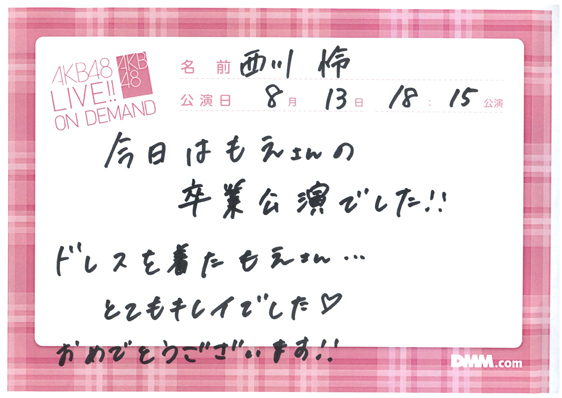 AKB48
LIVE!!
ON DEMAND
AKB
48
名 前 西川 怜
公演日 8月 13日 18:15 公演
今日はもえさんの
卒業公演でした!!
ドレスを着たもえさん…
とてもキレイでした♡
おめでとうございます!!
DMM.com